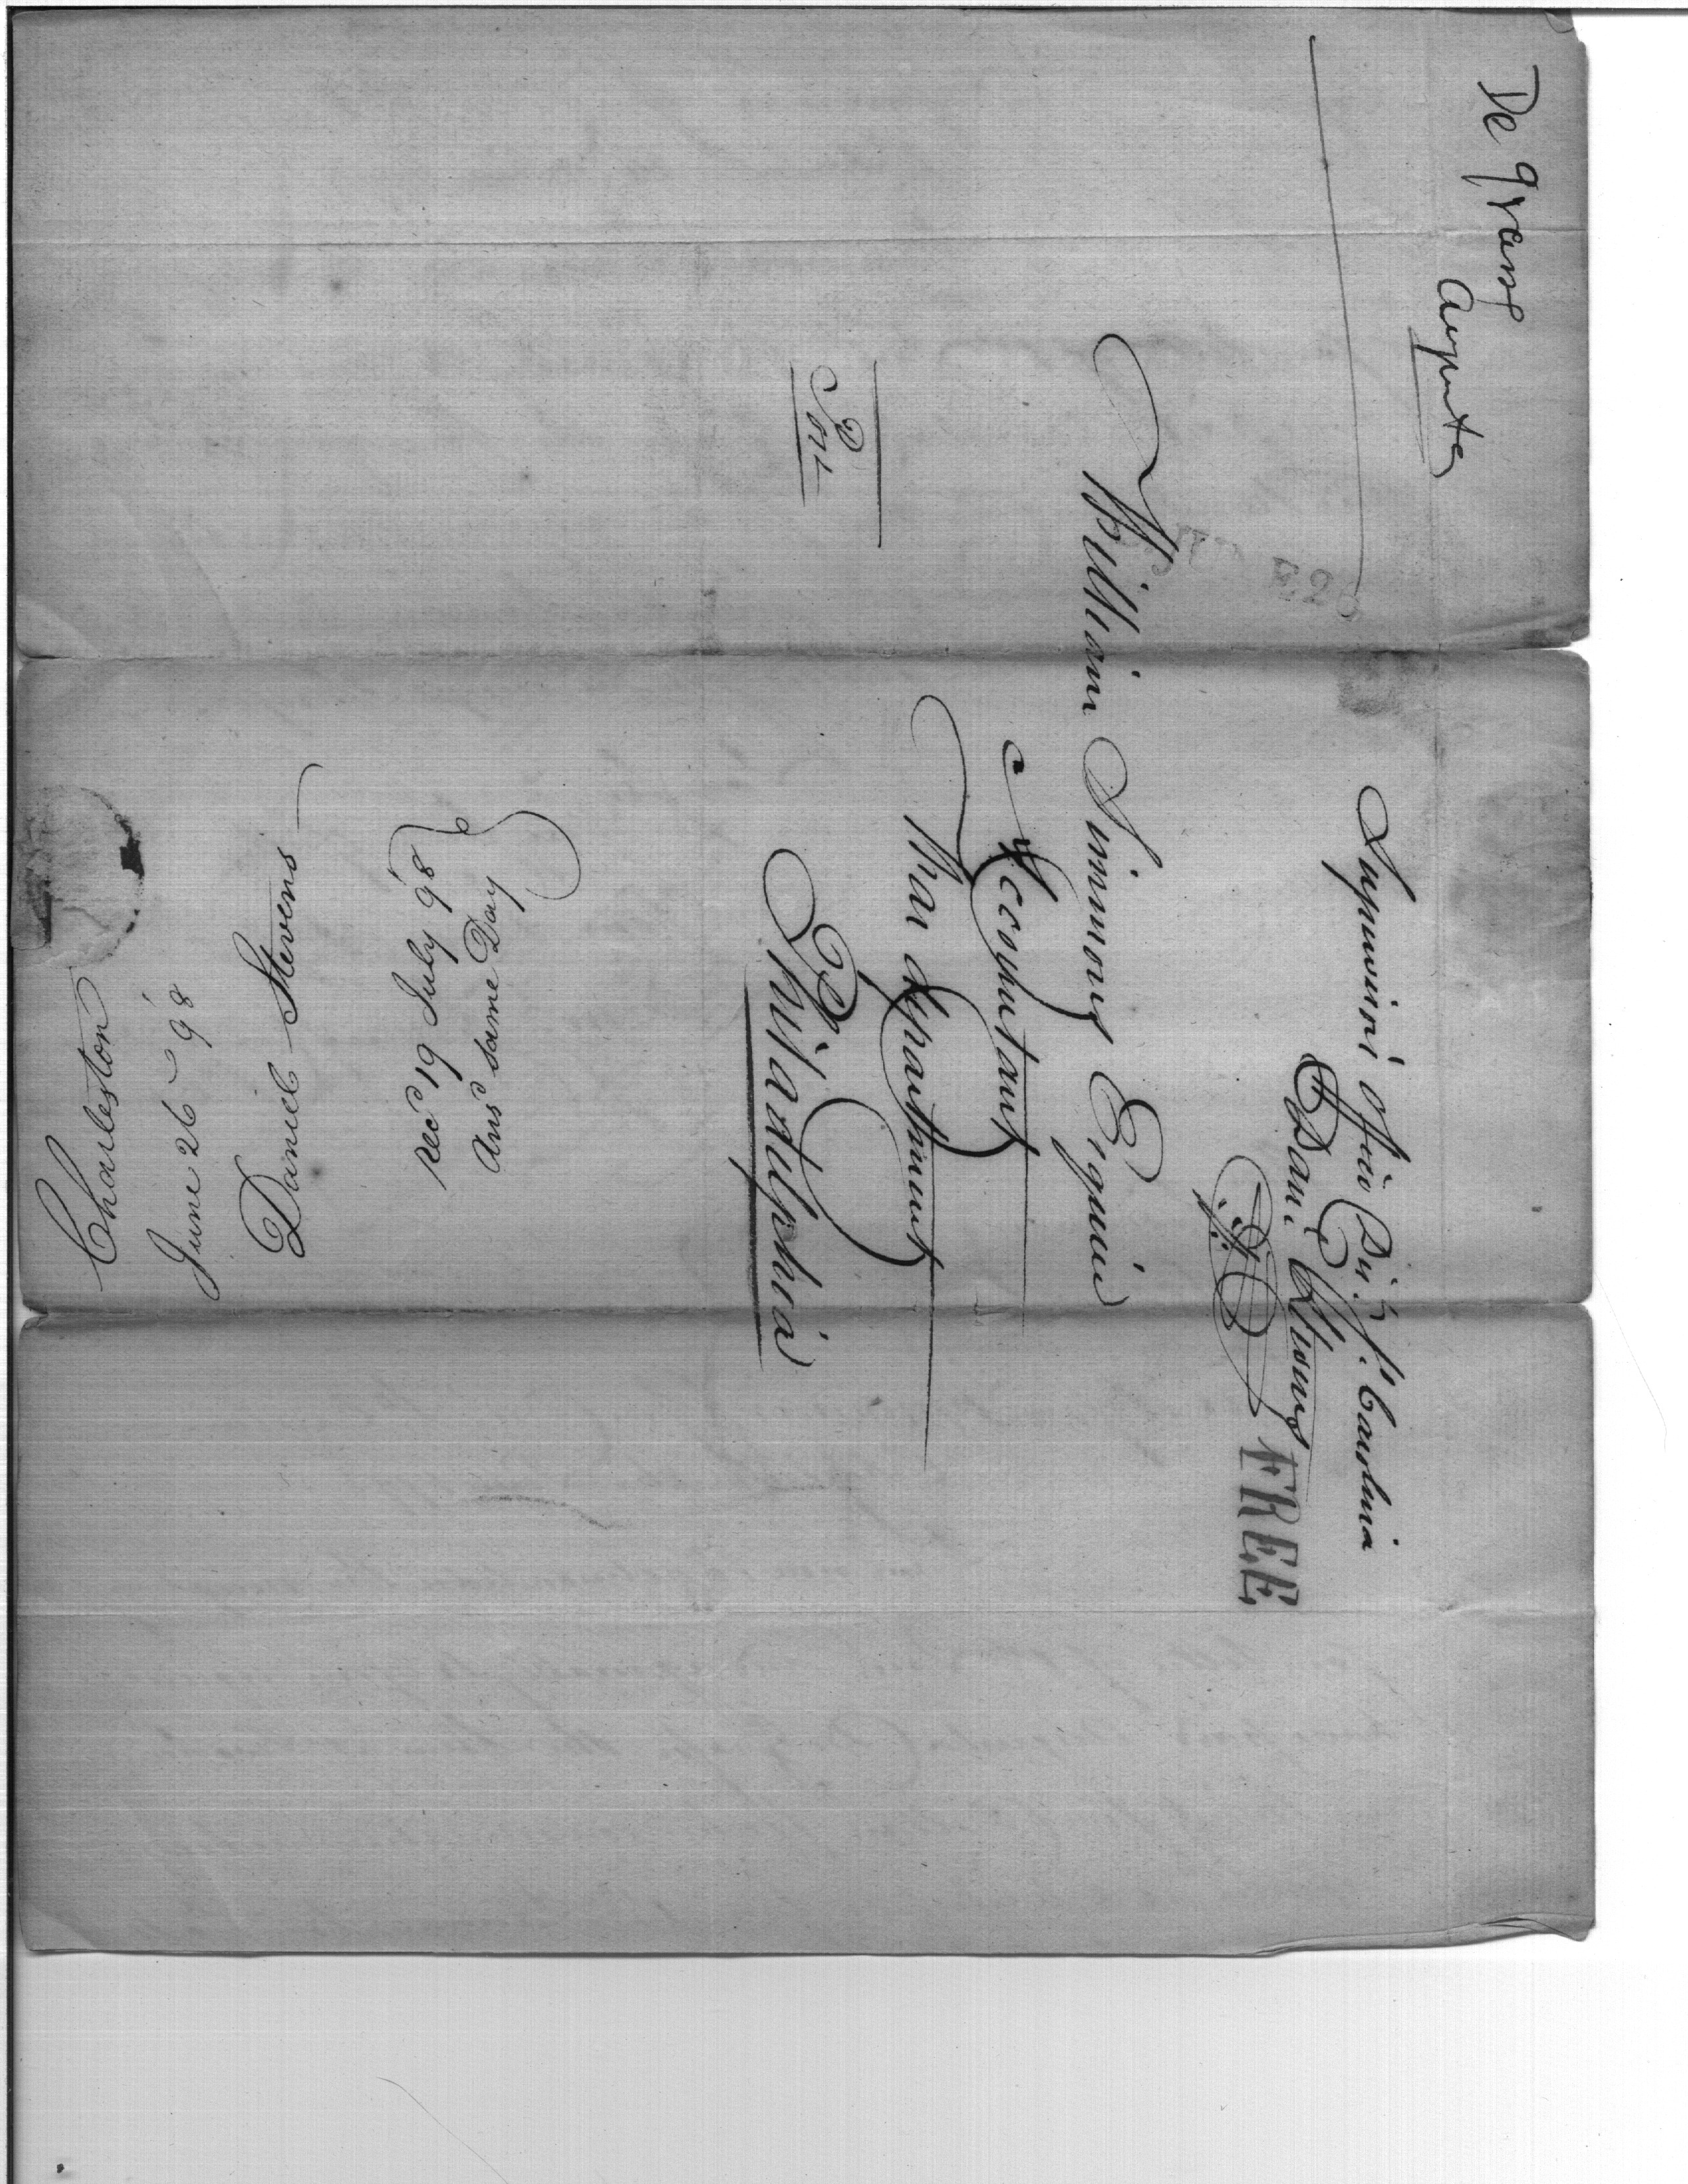 De Grasse
Auguste
Supervisors Office Dist S. Carolina
Dan: Stevens
FREE
William Simmons Esquire
Accomptant
War department
Philadelphia
Port
Charleston
June 26 98
Daniel Stevens
Recd 19 July 98
Ans same Day